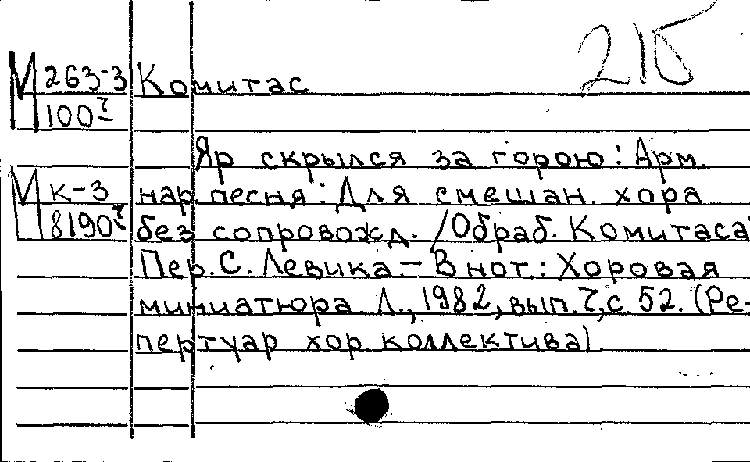 215
М 263-3 Комитас
100
Яр скрылся за горою: Арм.
М К-3 нар. песня: Для смешан. хора
8190 без сопровожд. /Обраб. Комитаса
Пер. С. Левика – В нот.: Хоровая
миниатюра Л., 1982, вып. 7, с 52. (Ре-
пертуар хор. коллектива)